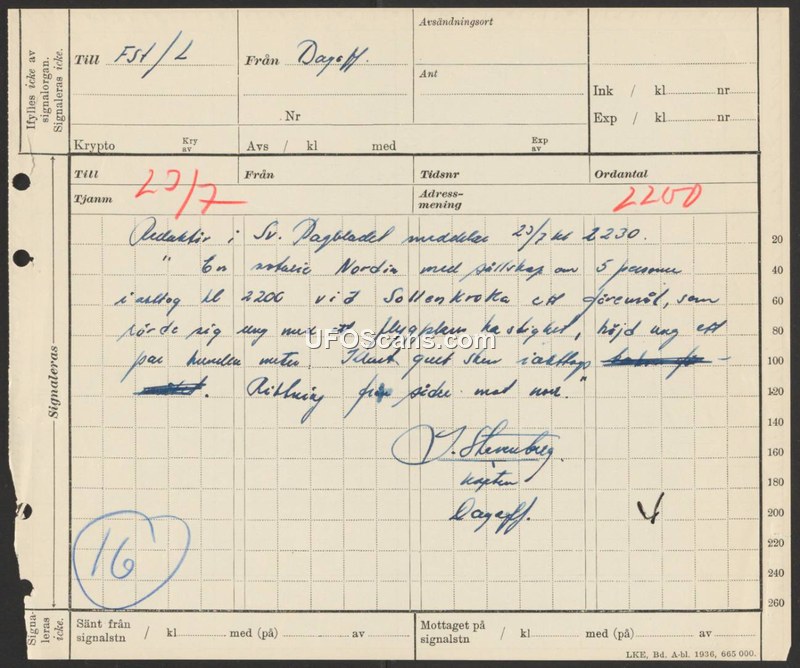 Ifylles icke av
signalorgan.
Signaleras icke.
Till FSt/L
Från Dagoff.
Avsändningsort
Ant
Nr
Ink / kl nr
Exp / kl nr
Krypto
Kry
av
Avs / kl med
Exp
av
Till
Från
Tidsnr
Ordantal
Tjanm
23/7
Adress-
mening
2200
Redaktör i Sv. Dagbladet meddelar 23/7 kl 2230.
" En notarie Nordin med sällskap om 5 personer
iakttog kl 2200 vid Sollenkroka ett föremål, som
rörde sig ung med flygplans hastighet, höjd ung ett
par hundra meter. Klart gult sken iakttogs
. Riktning från söder mot norr."
kapten
Dagoff.
4
16
20
40
60
80
100
120
140
160
180
200
220
240
260
Signaleras
Signa-
leras
icke.
Sänt från
signalstn / kl med (på) av
Mottaget på
signalstn / kl med (på) av
LKE, Bd. A-bl. 1936, 665 000.
UFOScans.com